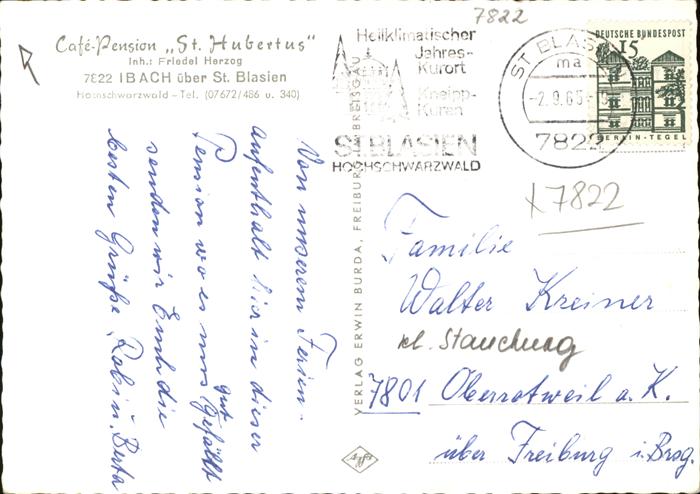 7822
Café-Pension „St. Hubertus"
Inh.: Friedel Herzog
7822 IBACH über St. Blasien
Hochschwarzwald - Tel. (07672/486 u. 340)
Heilklimatischer
Jahres-
Kurort
Kneipp-
Kuren
ST.BLASIEN
HOCHSCHWARZWALD
ST BLASIEN
ma
-2.9.65
7822
DEUTSCHE BUNDESPOST
15
BERLIN-TEGEL
7822
Von unserem Ferien-
aufenthalt hier in dieser
Pension wo es uns gut gefällt
senden wir Euch die
besten Grüße, Berta
VERLAG ERWIN BURDA, FREIBURG I. BREISGAU
Familie
Walter Kreiner
7801 Oberrotweil a. K.
über Freiburg i. Brsg.
Agfa